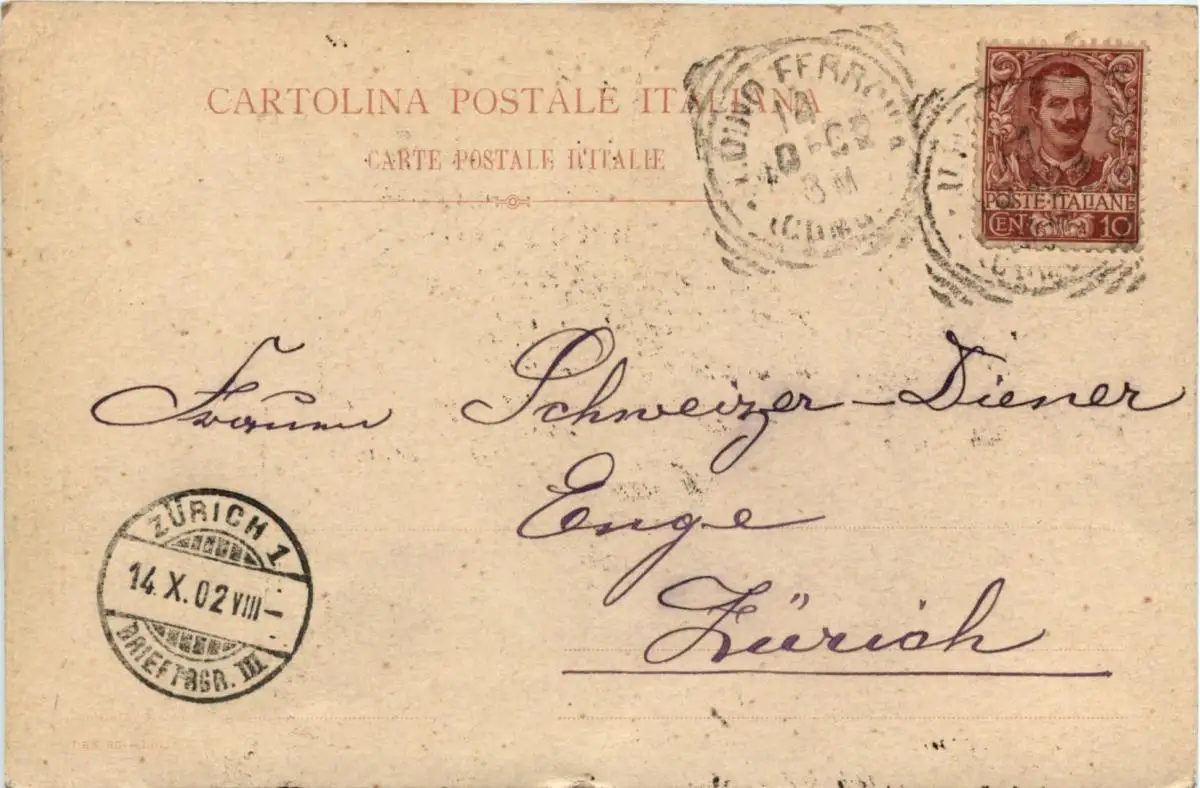 CARTOLINA POSTALE ITALIANA
CARTE POSTALE D'ITALIE
10-02
8 M
(COMO)
POSTE·ITALIANE
CEN 10
Frauen Schweizer-Diener
Enge
Zürich
ZÜRICH 1
14.X.02 VIII-
BRIEFTRGR. III